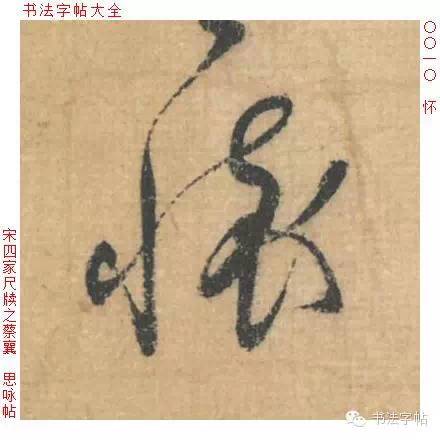 书法字帖大全
〇〇一〇 怀
懷
宋四家尺牍之蔡襄 思咏帖
书法字帖